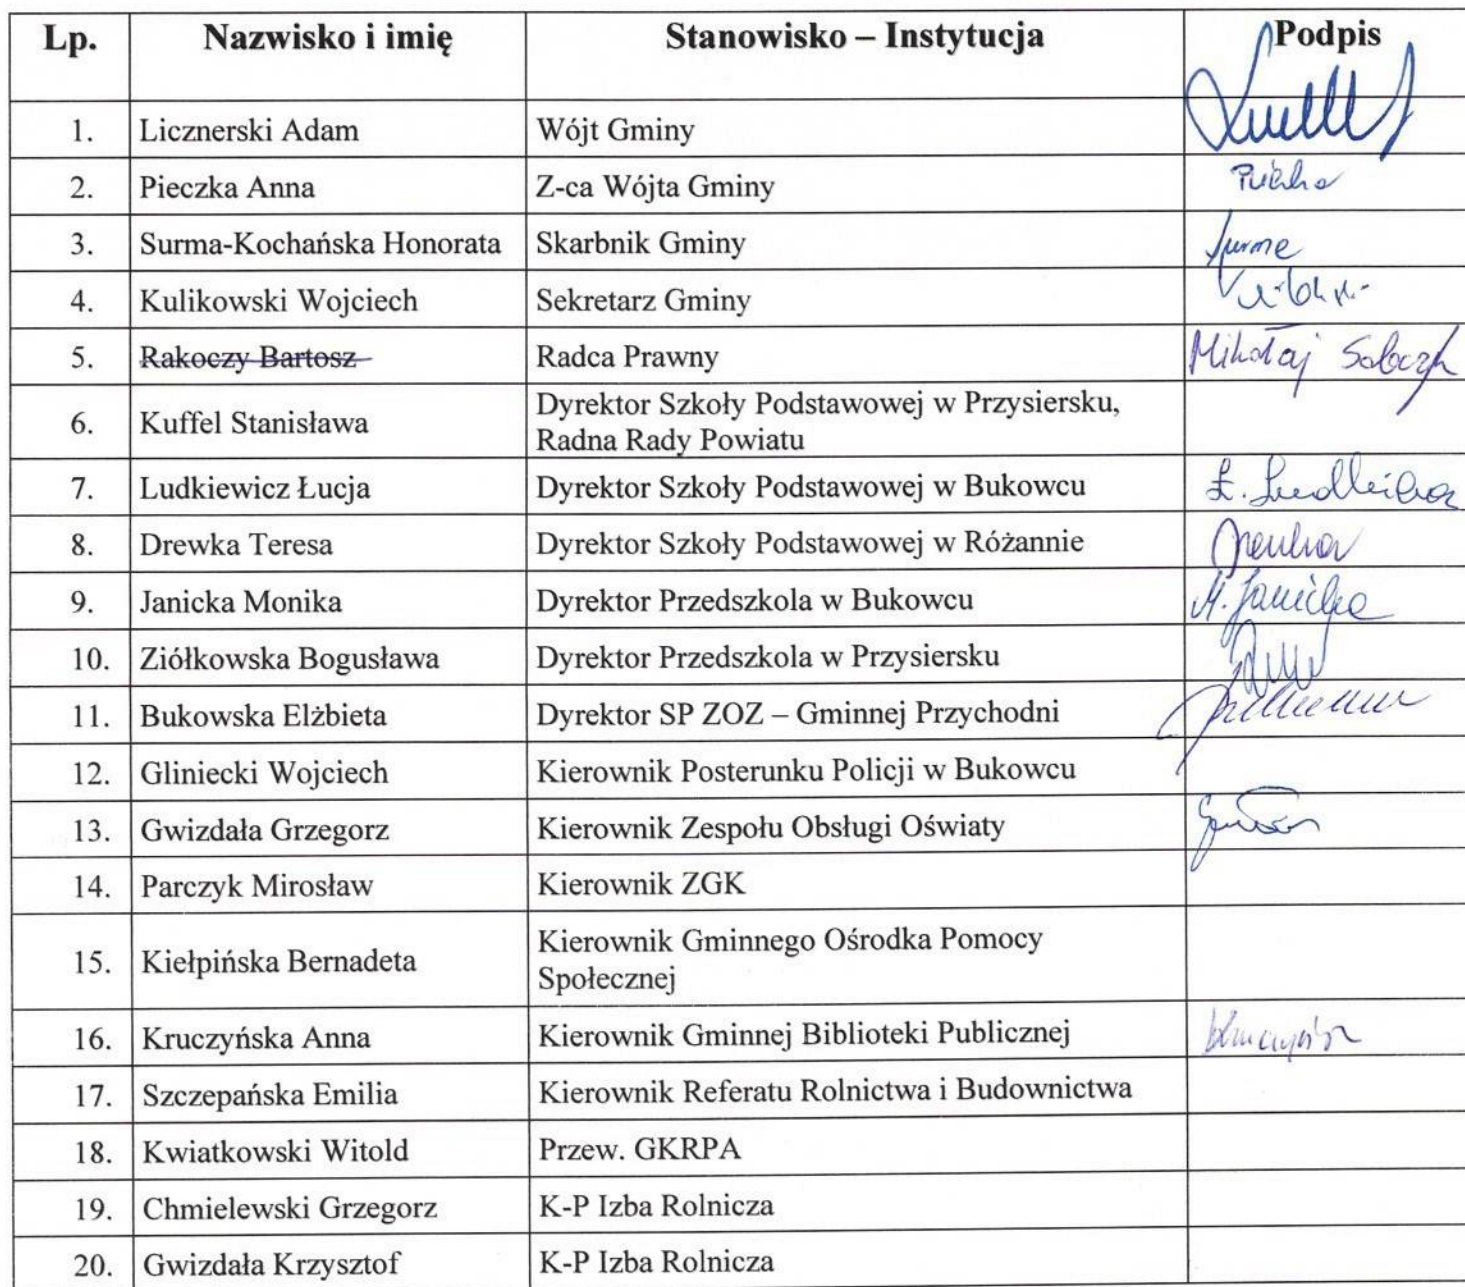 Lp. Nazwisko i imię Stanowisko – Instytucja Podpis
1. Licznerski Adam Wójt Gminy
2. Pieczka Anna Z-ca Wójta Gminy
3. Surma-Kochańska Honorata Skarbnik Gminy
4. Kulikowski Wojciech Sekretarz Gminy
5. Rakoczy Bartosz Radca Prawny Mikołaj
6. Kuffel Stanisława Dyrektor Szkoły Podstawowej w Przysiersku,
Radna Rady Powiatu
7. Ludkiewicz Łucja Dyrektor Szkoły Podstawowej w Bukowcu
8. Drewka Teresa Dyrektor Szkoły Podstawowej w Różannie
9. Janicka Monika Dyrektor Przedszkola w Bukowcu M. Janicka
10. Ziółkowska Bogusława Dyrektor Przedszkola w Przysiersku
11. Bukowska Elżbieta Dyrektor SP ZOZ – Gminnej Przychodni
12. Gliniecki Wojciech Kierownik Posterunku Policji w Bukowcu
13. Gwizdała Grzegorz Kierownik Zespołu Obsługi Oświaty
14. Parczyk Mirosław Kierownik ZGK
15. Kiełpińska Bernadeta Kierownik Gminnego Ośrodka Pomocy
Społecznej
16. Kruczyńska Anna Kierownik Gminnej Biblioteki Publicznej
17. Szczepańska Emilia Kierownik Referatu Rolnictwa i Budownictwa
18. Kwiatkowski Witold Przew. GKRPA
19. Chmielewski Grzegorz K-P Izba Rolnicza
20. Gwizdała Krzysztof K-P Izba Rolnicza